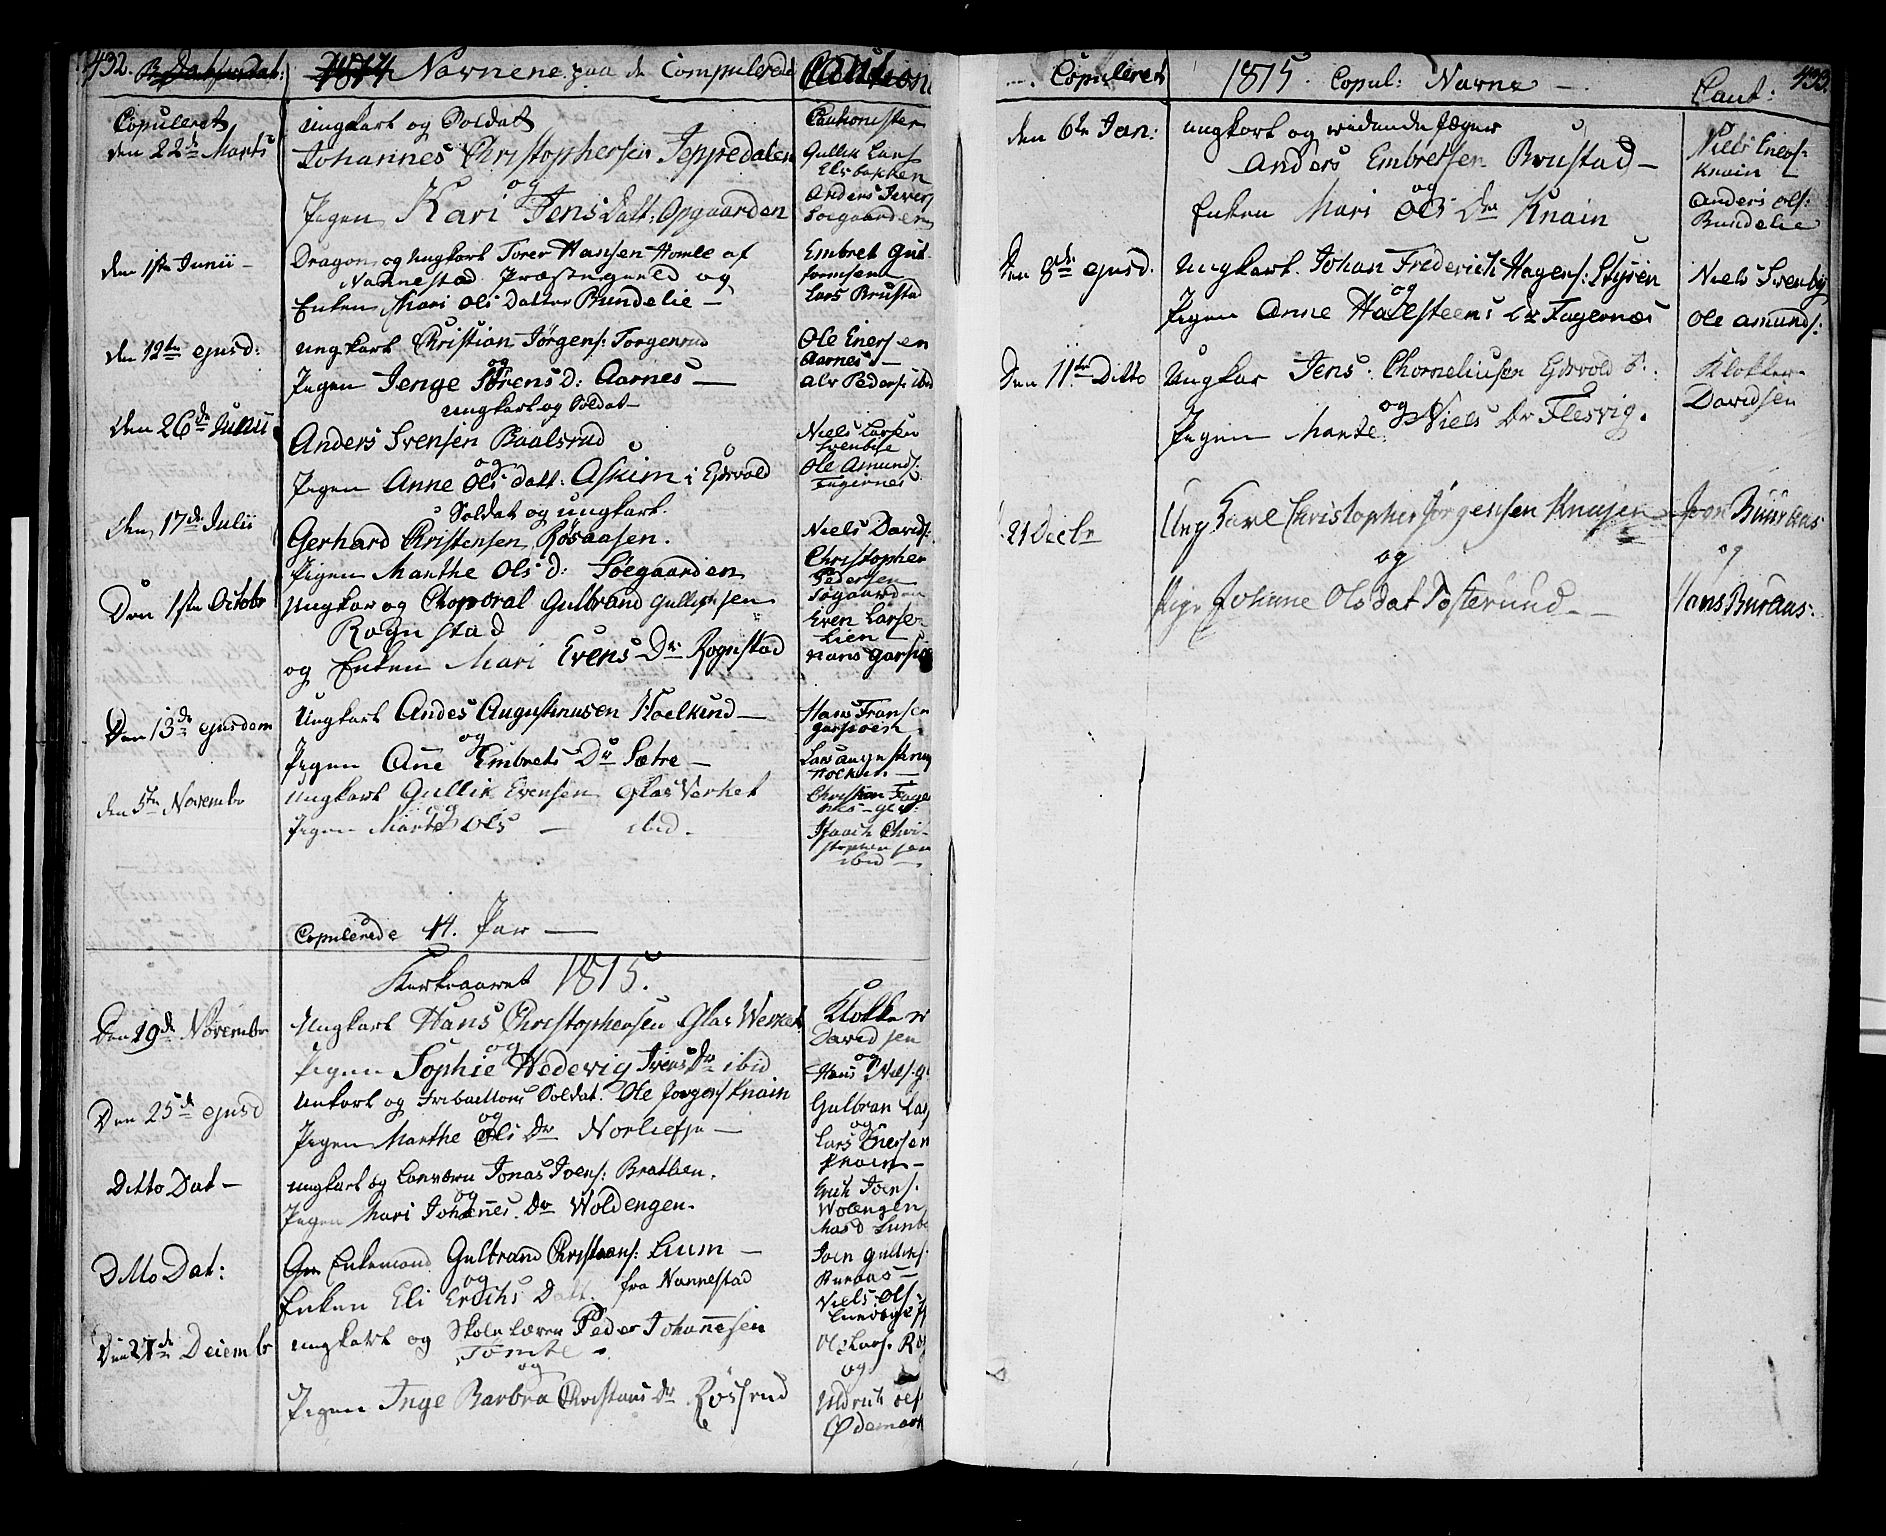 432.
1814 Navnene paa de Compulerede
Cautionist
Copuleret
den 22de Marts
ungkarl og Soldat
Johannes Christophersen Jeppedalen
og
Pigen Kari Jens Datt: Opgaarden
Cautionister
Gullik Lars
Elsbakken
Anders Iver
Soegaarden
den 1ste Junii –
Dragon og ungkarl Torer Hansen Homle af
Nannestad Præstegield og
Enken Mari Ols Datter Bundelie –
Embret Gut
formsen
Lars Brustad
den 12te ejusd:
ungkarl Christian Jørgens: Torgenrud
og
Pigen Jenge Sørens D: Aarnes –
Ole Enersen
Aarnes –
Alv Peders: ibid
den 26de Junii
ungkarl og Soldat –
Anders Svensen Baalsrud
og
Pigen Anne Ols datt: Askim i Ejdsvold
Niels Larsen
Svenbye
Ole Amunds:
Fagernes
den 17de Julii
Soldat og ungkarl.
Gerhard Christensen Røsaasen.
Pigen Marthe Ols D: Søegaarden
Niels Davids:
Christopher
Pedersen
Søgaarden
Den 1ste Octobr
Ungkar og Choporal Gulbrand Gulliksen
Rognstad
og Enken Mari Evens Dr Rognstad
Even Larsen
Lien –
Hans Garsiøe
Den 13de ejusdem
Ungkarl Andes Augustinusen Hoelkind –
og
Pigen Ane Embrets Dr Sætre –
Hans Fransen
Garsioen
Lars Augustinus
den 5te Novembr
Ungkarl Gullik Evensen GlasVerket
og
Pigen Marte Ols – ibid.
Christian Fager
nes –
Isaach Chri-
stophersen
ibid –
Copulerede 14. Par –
Kirkeaaret 1815.
Den 19de Novembr
Ungkarl Hans Christophersen GlasWerket
og
Pigen Sophie Hedevig Ivers Dr ibid
Klokker
Davidsen
og
Hans Niels:
Den 25de ejusd
Unkarl og Trebaellons Soldat. Ole Jorgens Knain
og
Pigen Marthe Ols Dr Norliefje –
Gulbran Lars
og
Lars Enersen
Knain –
Ditto Dat –
ungkarl og Lanværn Jonas Joens: Brathen.
og
Pigen Mari Johannes. Dr Woldengen.
Erich Joens.
Wolengen
Mads Lunb
Ditto Dat:
Enkemand Gulbrand Christians: Lium –
og
Enken Eli Erichs Datt. fra Nannestad
Joen Gulens:
Buraas –
Niels Ols:
Den 27de Decembr
ungkarl og Skole Lærer Peder Johannesen
Tømte.
og
Pigen Inge Barbra Christians Dr Røssrud
Ole Lars. Røs
og
Uldrich Ols
Ødemark
Copuleret
1815. Copul: Navne –
Caut:
433.
den 6te Jan:
ungkarl og ridende Jæger
Anders Embretsen Brustad –
og
Enken Mari Ols Dr Knain
Niels Eners:
Knain
Anders Ols:
Bundelie
Den 8de ejusd.
Ungkarl. Johan Frederich Hagens: Styren
og
Pigen Anne Halsteens Dr Fagernæs
Niels Svenby
Ole Amunds:
Den 11te Ditto
Ungkar Jens Chorneliusen Ejdsvold
og
Pigen Marte Niels Dr Flesvig.
Klokker
Davidsen
21 Decbr
Ung Karl Christopher Jørgensen Knajen
og
Pige Johanne Olsdat Tosterund –
Joen Buuraas
og
Hans Buraas: